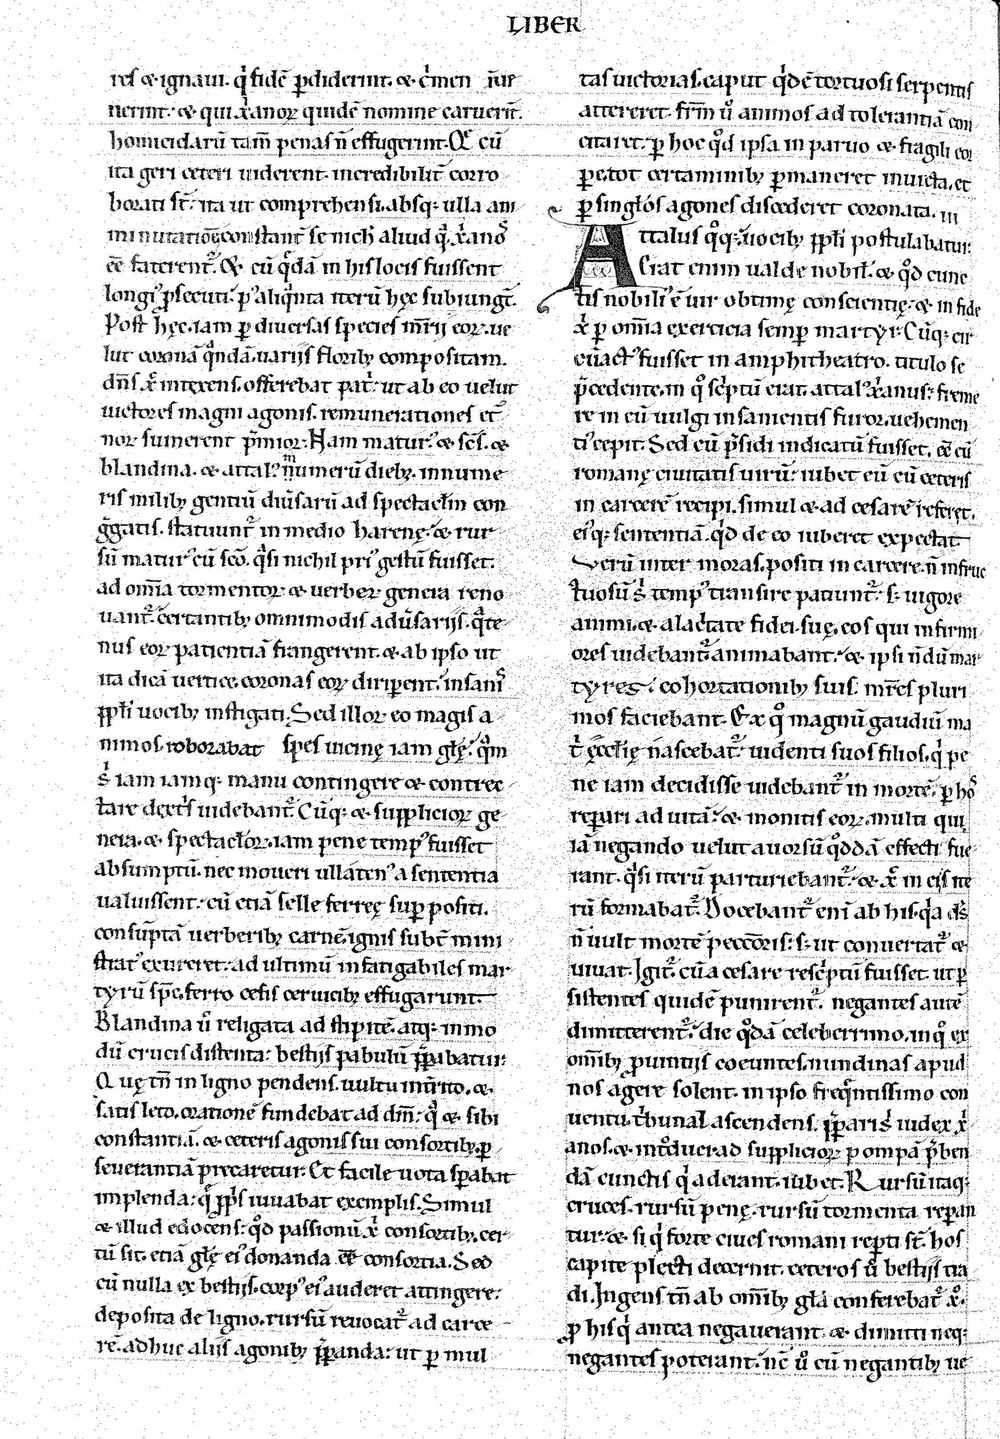 LIBER
res & ignaui. q̇ fidē ꝑdiderint. & c̓men ñ ir
uerint. & qui xp̄ianoꝝ quidē nomine caruerīt.
homicidarū tam̄ penas n̄ effugerint. Q̄ cū
ita geri ceteri uiderent. incredibilit̄ corro
borati st̄. ita ut comprehensi. absq; ulla ani
mi mutatiōe constant̄ se nichil aliud q̄ xp̄ianos
ēē faterent̄. & cū q̄dā in his locis fuissent
longi᾽ ꝓsecuti. p᾽ aliq̄nta iterū hęc subiungt̄.
Post hęc. iam ꝑ diuersas species mr̄ii eoꝝ. ue
lut coronā q̄ndā. uariis florib; compositam.
dn̄s x̄ intexens. offerebat patri. ut ab eo uelut
uictores magni agonis. remunerationes et᾽
noꝝ sumerent p̄mioꝝ. Nam matur᾽ & sc̄s. &
blandina. & attal᾽ numerū dieb;. innume
ris milib; gentiū diu᾽sarū ad spectacl̄m con
g̓gatis. statuunt̄ in medio harenę. & rur
sū matur᾽ cū sc̄o. q̓si nichil pri᾽ gestū fuisset.
ad om̄ia tormentoꝝ & uerbeꝝ genera reno
uant̄. certantib; omnimodis adu᾽sariis. q̓te
nus eoꝝ patientiā frangerent. & ab ipso ut
ita dicā uertice. coronas eoꝝ diriperent. insani᾽
ppl̄i uocib; instigati. Sed illoꝝ eo magis a
nimos. roborabat spes uicinę iam gl̄ę. q̄m
s᾽ iam iamq; manu contingere & contrec
tare dext̄s uidebant̄. Cūq; & supplicioꝝ ge
nera. & spectacl̄oꝝ. iam pene temp᾽ fuisset
absumptū. nec moueri ullaten᾽ a sententia
ualuissent. cū etiā selle ferreę suꝑ positi.
consūptā uerberib; carnē. ignis subt̄ mini
strat᾽ exureret. ad ultimū infatigabiles mar
tyrū sp̄c. ferro cesis ceruicib; effugarunt
Blandina ū religata ad stipitē. atq; in mo
dū crucis distenta. bestiis pabulū p̄parabatur.
Quę tn̄ in ligno pendens. uultu inťrito. &
satis leto. orationē fundebat ad dn̄m. q̄ & sibi
constantiā. & ceteris agonis sui consortib;. ꝑ
seuerantiā precaretur. Et facile uota sꝑabat
implenda. q̄ pp̄ls iuuabat exemplis. Simul
& illud edocens. q̄d passionū x̄ consortib;. cer
tū sit. etiā gl̄ę ei᾽ donanda ēē consortia. Sed
cū nulla ex bestiis. corp᾽ ei᾽ auderet attingere.
deposita de ligno. rursū reuocat̄ ad carce
rē. adhuc aliis agonib; p̄paranda. ut ꝑ mul
tas uictorias. caput q̄dē tortuosi serpentis
attereret. frm̄ ū animos ad tolerantiā con
citaret. ꝑ hoc q̄d ipsa in paruo & fragili cor
pe. tot certaminib; ꝑmaneret inuicta. et
ꝑ singl̄os agones discederet coronata. in
Attalus q᾽q; uocib; ppl̄i postulabatur.
Erat enim ualde nobil̄. & q̄d cunc
tis nobili᾽ ē uir obtimę conscientię. & in fide
x̄ ꝑ om̄ia exercicia semꝑ martyr. Cūq; cir
cūact᾽ fuisset in amphitheatro. titulo se
p̄cedente. in q̊ sc̓ptū erat. attal᾽ xp̄ianus. freme
re in eū uulgi insanientis furor. uehemen
ti᾽ cepit. Sed cū p̄sidi indicatū fuisset. eē eū
romanę ciuitatis uirū. iubet eū cū ceteris
in carcerē recipi. simul & ad cesarē referret.
ei᾽q; sententiā. q̓d de eo iuberet expectat
Verū inter moras. positi in carcere. n̄ infruc
tuosū s᾽ temp᾽ transire patiunt̄. s; uigore
animi. & alac̓tate fidei. suę. eos qui infirmi
ores uidebant̄. animabant. & ipsi n̄dū mar
tyres. cohortationib; suis. mr̄es pluri
mos faciebant. Ex q̊ magnū gaudiū ma
t̓ ęccl̄ię nascebat̄. uidenti suos filios. q̓ pe
ne iam decidisse uidebant̄ in mortē. ꝑ hos
reparari ad uitā. & monitis eoꝝ. multi qui
iā negando uelut auorsū q̄ddā effecti fue
rant. q̓si iterū parturiebant̄. & x̄ in eis ite
rū formabat̄. Docebant̄ enī ab his. q̓a ds̄
n̄ uult mortē peccr̄is. s; ut conuertat̄ &
uiuat. Igit̄ cū a cesare resc̓ptū fuisset. ut ꝑ
sistentes quidē punirent̄. negantes autē
dimitterent̄. die q̄dā celeberrimo. in q̊ ex
om̄ib; prouintiis coeuntes. nundinas apud
nos agere solent. in ipso freq̄ntissimo con
uentu. t̓bunal ascendens. p̄paris᾽ iudex x̄
anos. & intr̄duci ad supplicioꝝ pompā p̄ben
dā cunctis q̓ aderant. iubet. Rursū itaq;
cruces. rursū penę. rursū tormenta reparan
tur. & si q̓ forte ciues romani reꝑti st̄. hos
capite plecti decernit. ceteros ū bestiis tra
di. Ingens tn̄ ab om̄ib; gl̄a conferebat̄ x̊.
ꝓ his q̓ antea negauerant. & dimitti neq;
negantes poterant. nc̄ ū cū negantib; ue